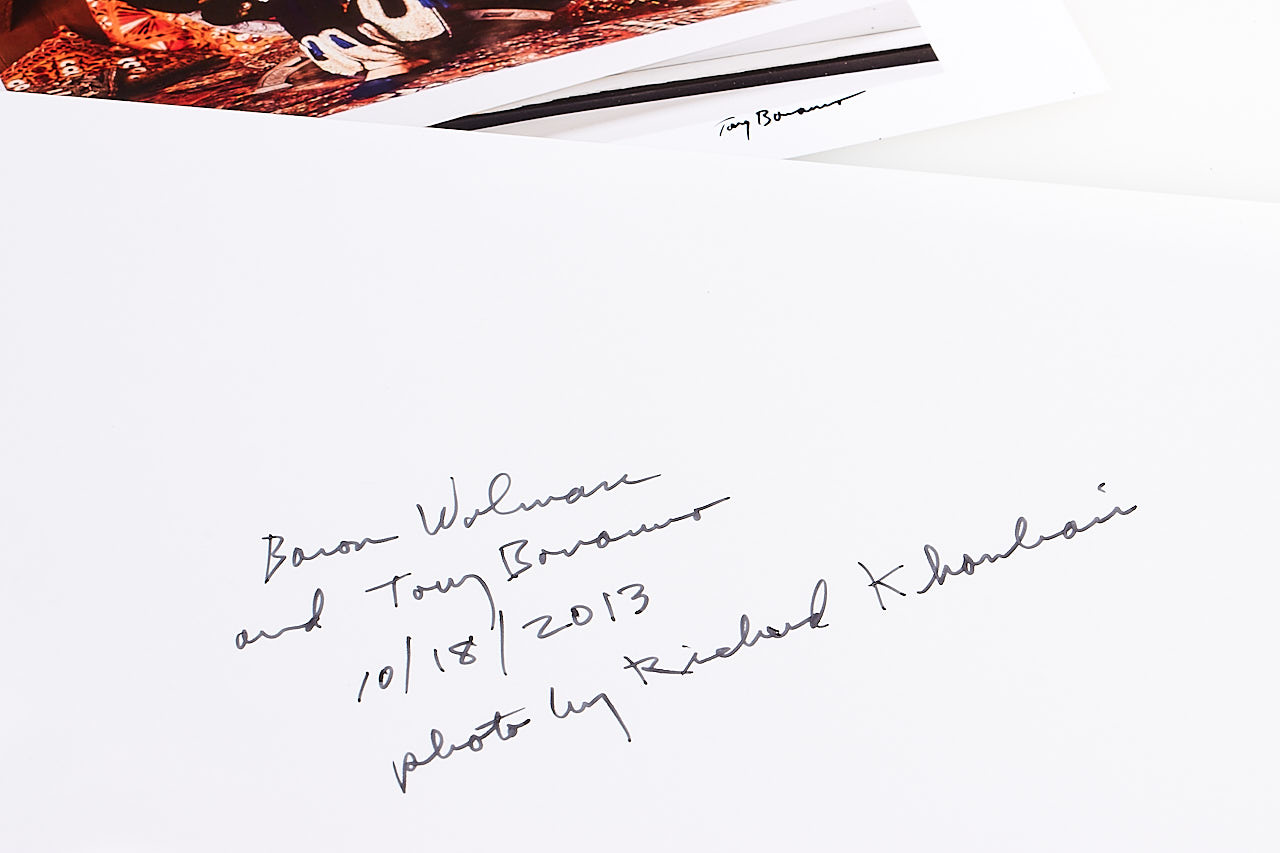 Tony Bonanno
Baron Wolman
and Tony Bonanno
10/18/2013
photo by Richard Khanlian